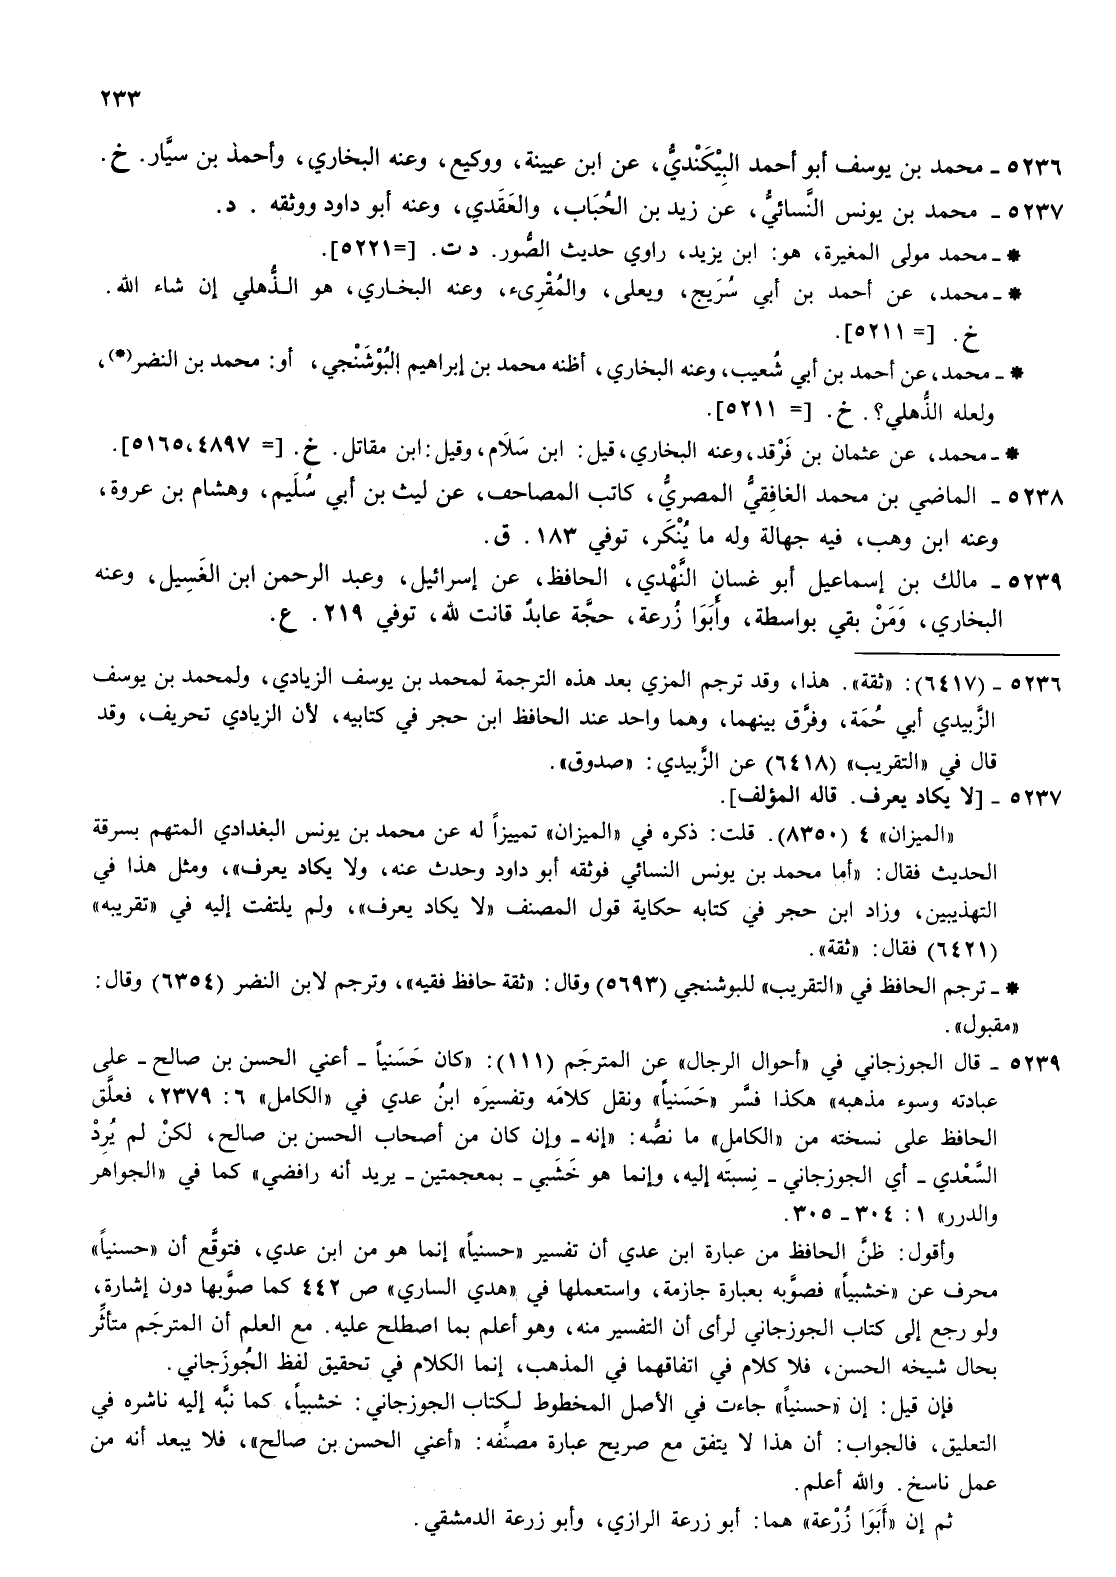 ٢٣٣
٥٢٣٦ ـ محمد بن يوسف أبو أحمد البِيْكَنْديُّ، عن ابن عيينة، ووكيع، وعنه البخاري، وأحمد بن سيَّار. خ.
٥٢٣٧ ـ محمد بن يونس النَّسائيُّ، عن زيد بن الحُبَاب، والعَقَدي، وعنه أبو داود ووثقه . د.
* ـ محمد مولى المغيرة، هو: ابن يزيد، راوي حديث الصُّور. د ت. [=٥٢٢١].
* ـ محمد، عن أحمد بن أبي سُرَيج، ويعلى، والمُقْرِىء، وعنه البخاري، هو الذُّهلي إن شاء الله.
خ. [= ٥٢١١].
* ـ محمد، عن أحمد بن أبي شُعيب، وعنه البخاري، أظنه محمد بن إبراهيم البُوْشَنْجي، أو: محمد بن النضر(*)،
ولعله الذُّهلي؟. خ. [= ٥٢١١].
* ـ محمد، عن عثمان بن فَرْقد، وعنه البخاري، قيل: ابن سَلَام، وقيل: ابن مقاتل. خ. [= ٤٨٩٧، ٥١٦٥].
٥٢٣٨ ـ الماضي بن محمد الغافِقيُّ المصريُّ، كاتب المصاحف، عن ليث بن أبي سُلَيم، وهشام بن عروة،
وعنه ابن وهب، فيه جهالة وله ما يُنْكَر، توفي ١٨٣. ق.
٥٢٣٩ ـ مالك بن إسماعيل أبو غسان النَّهْدي، الحافظ، عن إسرائيل، وعبد الرحمن ابن الغَسِيل، وعنه
البخاري، وَمَنْ بقي بواسطة، وأَبَوَا زُرعة، حجَّة عابدٌ قانت لله، توفي ٢١٩. ع.
٥٢٣٦ ـ (٦٤١٧): «ثقة». هذا، وقد ترجم المزي بعد هذه الترجمة لمحمد بن يوسف الزيادي، ولمحمد بن يوسف
الزَّبيدي أبي حُمَة، وفرَّق بينهما، وهما واحد عند الحافظ ابن حجر في كتابيه، لأن الزيادي تحريف، وقد
قال في «التقريب» (٦٤١٨) عن الزَّبيدي: «صدوق».
٥٢٣٧ ـ [لا يكاد يعرف. قاله المؤلف].
«الميزان» ٤ (٨٣٥٠). قلت: ذكره في «الميزان» تمييزاً له عن محمد بن يونس البغدادي المتهم بسرقة
الحديث فقال: «أما محمد بن يونس النسائي فوثقه أبو داود وحدث عنه، ولا يكاد يعرف»، ومثل هذا في
التهذيبين، وزاد ابن حجر في كتابه حكاية قول المصنف «لا يكاد يعرف»، ولم يلتفت إليه في «تقريبه»
(٦٤٢١) فقال: «ثقة».
* ـ ترجم الحافظ في «التقريب» للبوشنجي (٥٦٩٣) وقال: «ثقة حافظ فقيه»، وترجم لابن النضر (٦٣٥٤) وقال:
«مقبول».
٥٢٣٩ ـ قال الجوزجاني في «أحوال الرجال» عن المترجَم (١١١): «كان حَسَنياً ـ أعني الحسن بن صالح ـ على
عبادته وسوء مذهبه» هكذا فسَّر «حَسَنياً» ونقل كلامَه وتفسيرَه ابنُ عدي في «الكامل» ٦: ٢٣٧٩، فعلَّق
الحافظ على نسخته من «الكامل» ما نصُّه: «إنه ـ وإن كان من أصحاب الحسن بن صالح، لكنْ لم يُرِدْ
السَّعْدي ـ أي الجوزجاني ـ نِسبتَه إليه، وإنما هو خَشَبي ـ بمعجمتين ـ يريد أنه رافضي» كما في «الجواهر
والدرر» ١: ٣٠٤ ـ ٣٠٥.
وأقول: ظنَّ الحافظ من عبارة ابن عدي أن تفسير «حسنياً» إنما هو من ابن عدي، فتوقَّع أن «حسنياً»
محرف عن «خشبياً» فصوَّبه بعبارة جازمة، واستعملها في «هدي الساري» ص ٤٤٢ كما صوَّبها دون إشارة،
ولو رجع إلى كتاب الجوزجاني لرأى أن التفسير منه، وهو أعلم بما اصطلح عليه. مع العلم أن المترجَم متأثِّر
بحال شيخه الحسن، فلا كلام في اتفاقهما في المذهب، إنما الكلام في تحقيق لفظ الجُوزَجاني.
فإن قيل: إن «حسنياً» جاءت في الأصل المخطوط لكتاب الجوزجاني: خشبياً، كما نبَّه إليه ناشره في
التعليق، فالجواب: أن هذا لا يتفق مع صريح عبارة مصنِّفه: «أعني الحسن بن صالح»، فلا يبعد أنه من
عمل ناسخ. والله أعلم.
ثم إن «أَبَوَا زُرْعة» هما: أبو زرعة الرازي، وأبو زرعة الدمشقي.